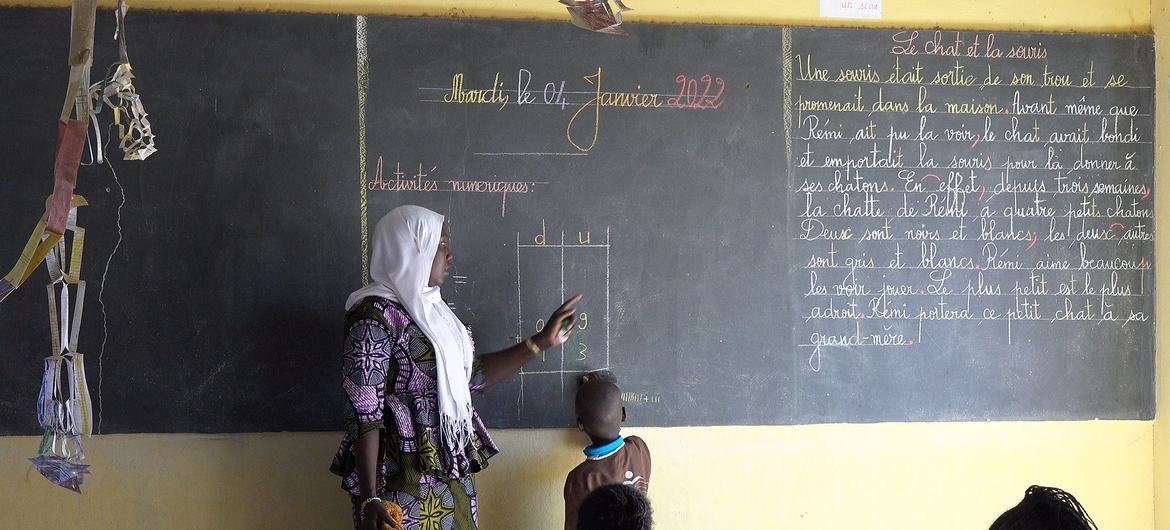 un seau
Mardi, le 04 Janvier 2022
Activités numeriques:
d u
0 9
3
Le chat et la souris
Une souris était sortie de son trou et se
promenait dans la maison. Avant même que
Rémi ait pu la voir, le chat avait bondi
et emportait la souris pour la donner à
ses chatons. En effet, depuis trois semaines,
la chatte de Rémi a quatre petits chatons
Deux sont noirs et blancs; les deux autres
sont gris et blancs. Rémi aime beaucoup
les voir jouer. Le plus petit est le plus
adroit. Rémi portera ce petit chat à sa
grand-mère.